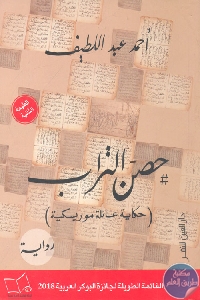 أحمد عبد اللطيف
الطبعة
الثانية
حصن التراب
(حكاية عائلة موريسكية)
رواية
دار العين للنشر
مكتبة
طريق العلم
القائمة الطويلة لجائزة البوكر العربية 2018